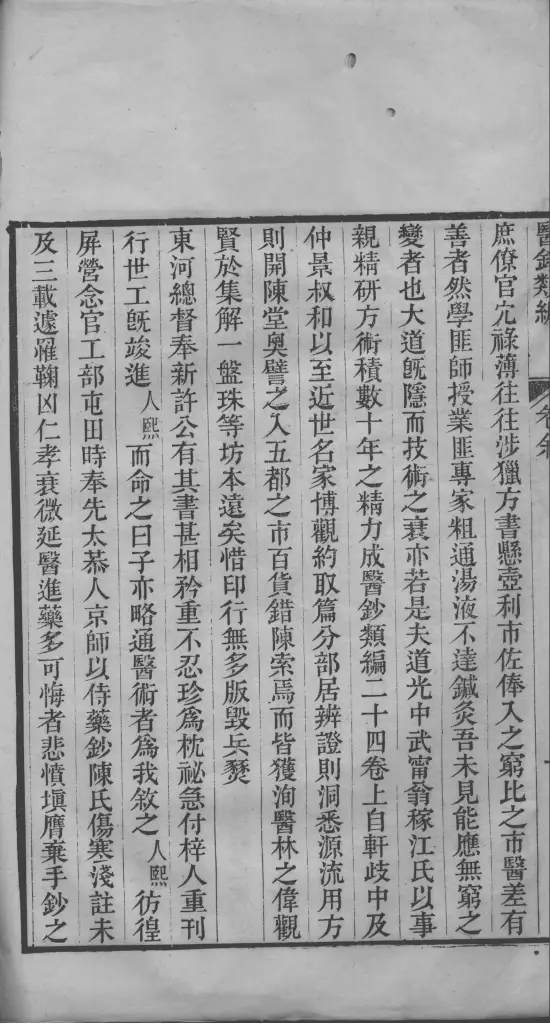 醫鈔類編
庶僚官宂祿薄往往涉獵方書懸壺利市佐俸入之窮比之市醫差有
善者然學匪師授業匪專家粗通湯液不達鍼灸吾未見能應無窮之
變者也大道旣隱而技術之衰亦若是夫道光中武甯翁稼江氏以事
親精研方術積數十年之精力成醫鈔類編二十四卷上自軒歧中及
仲景叔和以至近世名家博觀約取篇分部居辨證則洞悉源流用方
則開陳堂奥譬之入五都之市百貨錯陳索焉而皆獲洵醫林之偉觀
賢於集解一盤珠等坊本遠矣惜印行無多版毀兵燹
東河總督奉新許公有其書甚相矜重不忍珍爲枕祕急付梓人重刊
行世工旣竣進人熙而命之曰子亦略通醫術者爲我敘之人熙彷徨
屏營念官工部屯田時奉先太恭人京師以侍藥鈔陳氏傷寒淺註未
及三載遽罹鞠凶仁孝衰微延醫進藥多可悔者悲憤塡膺棄手鈔之